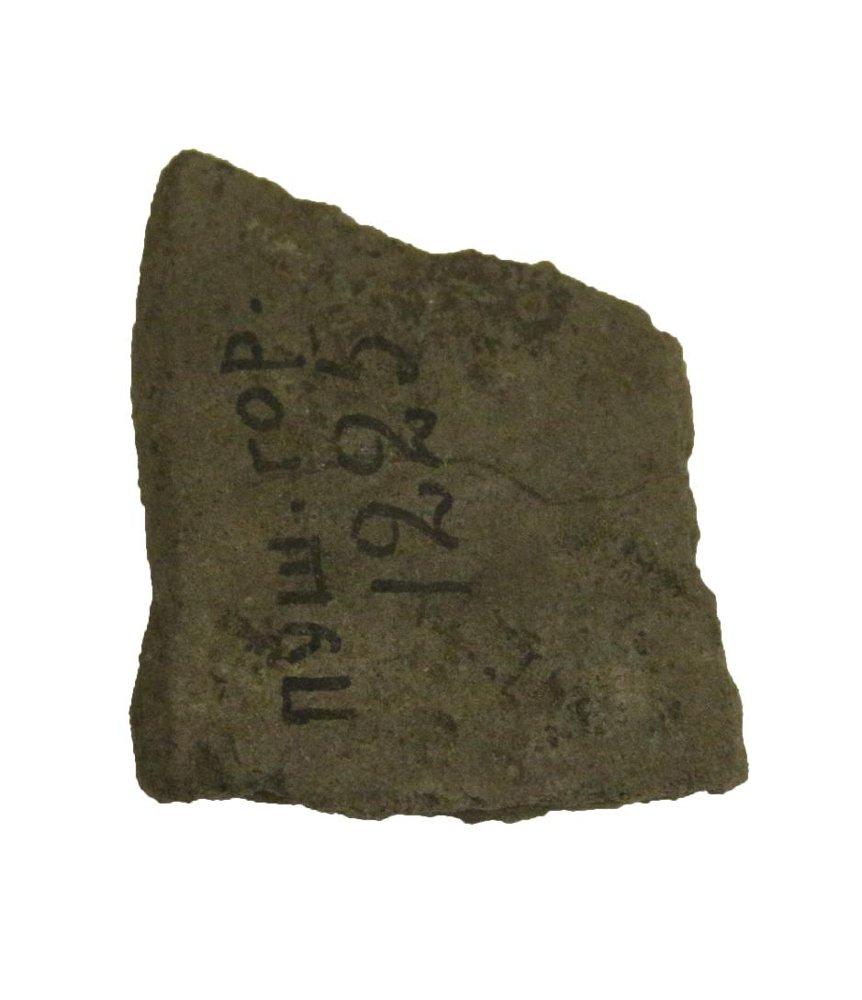 пуш. гор.
1225